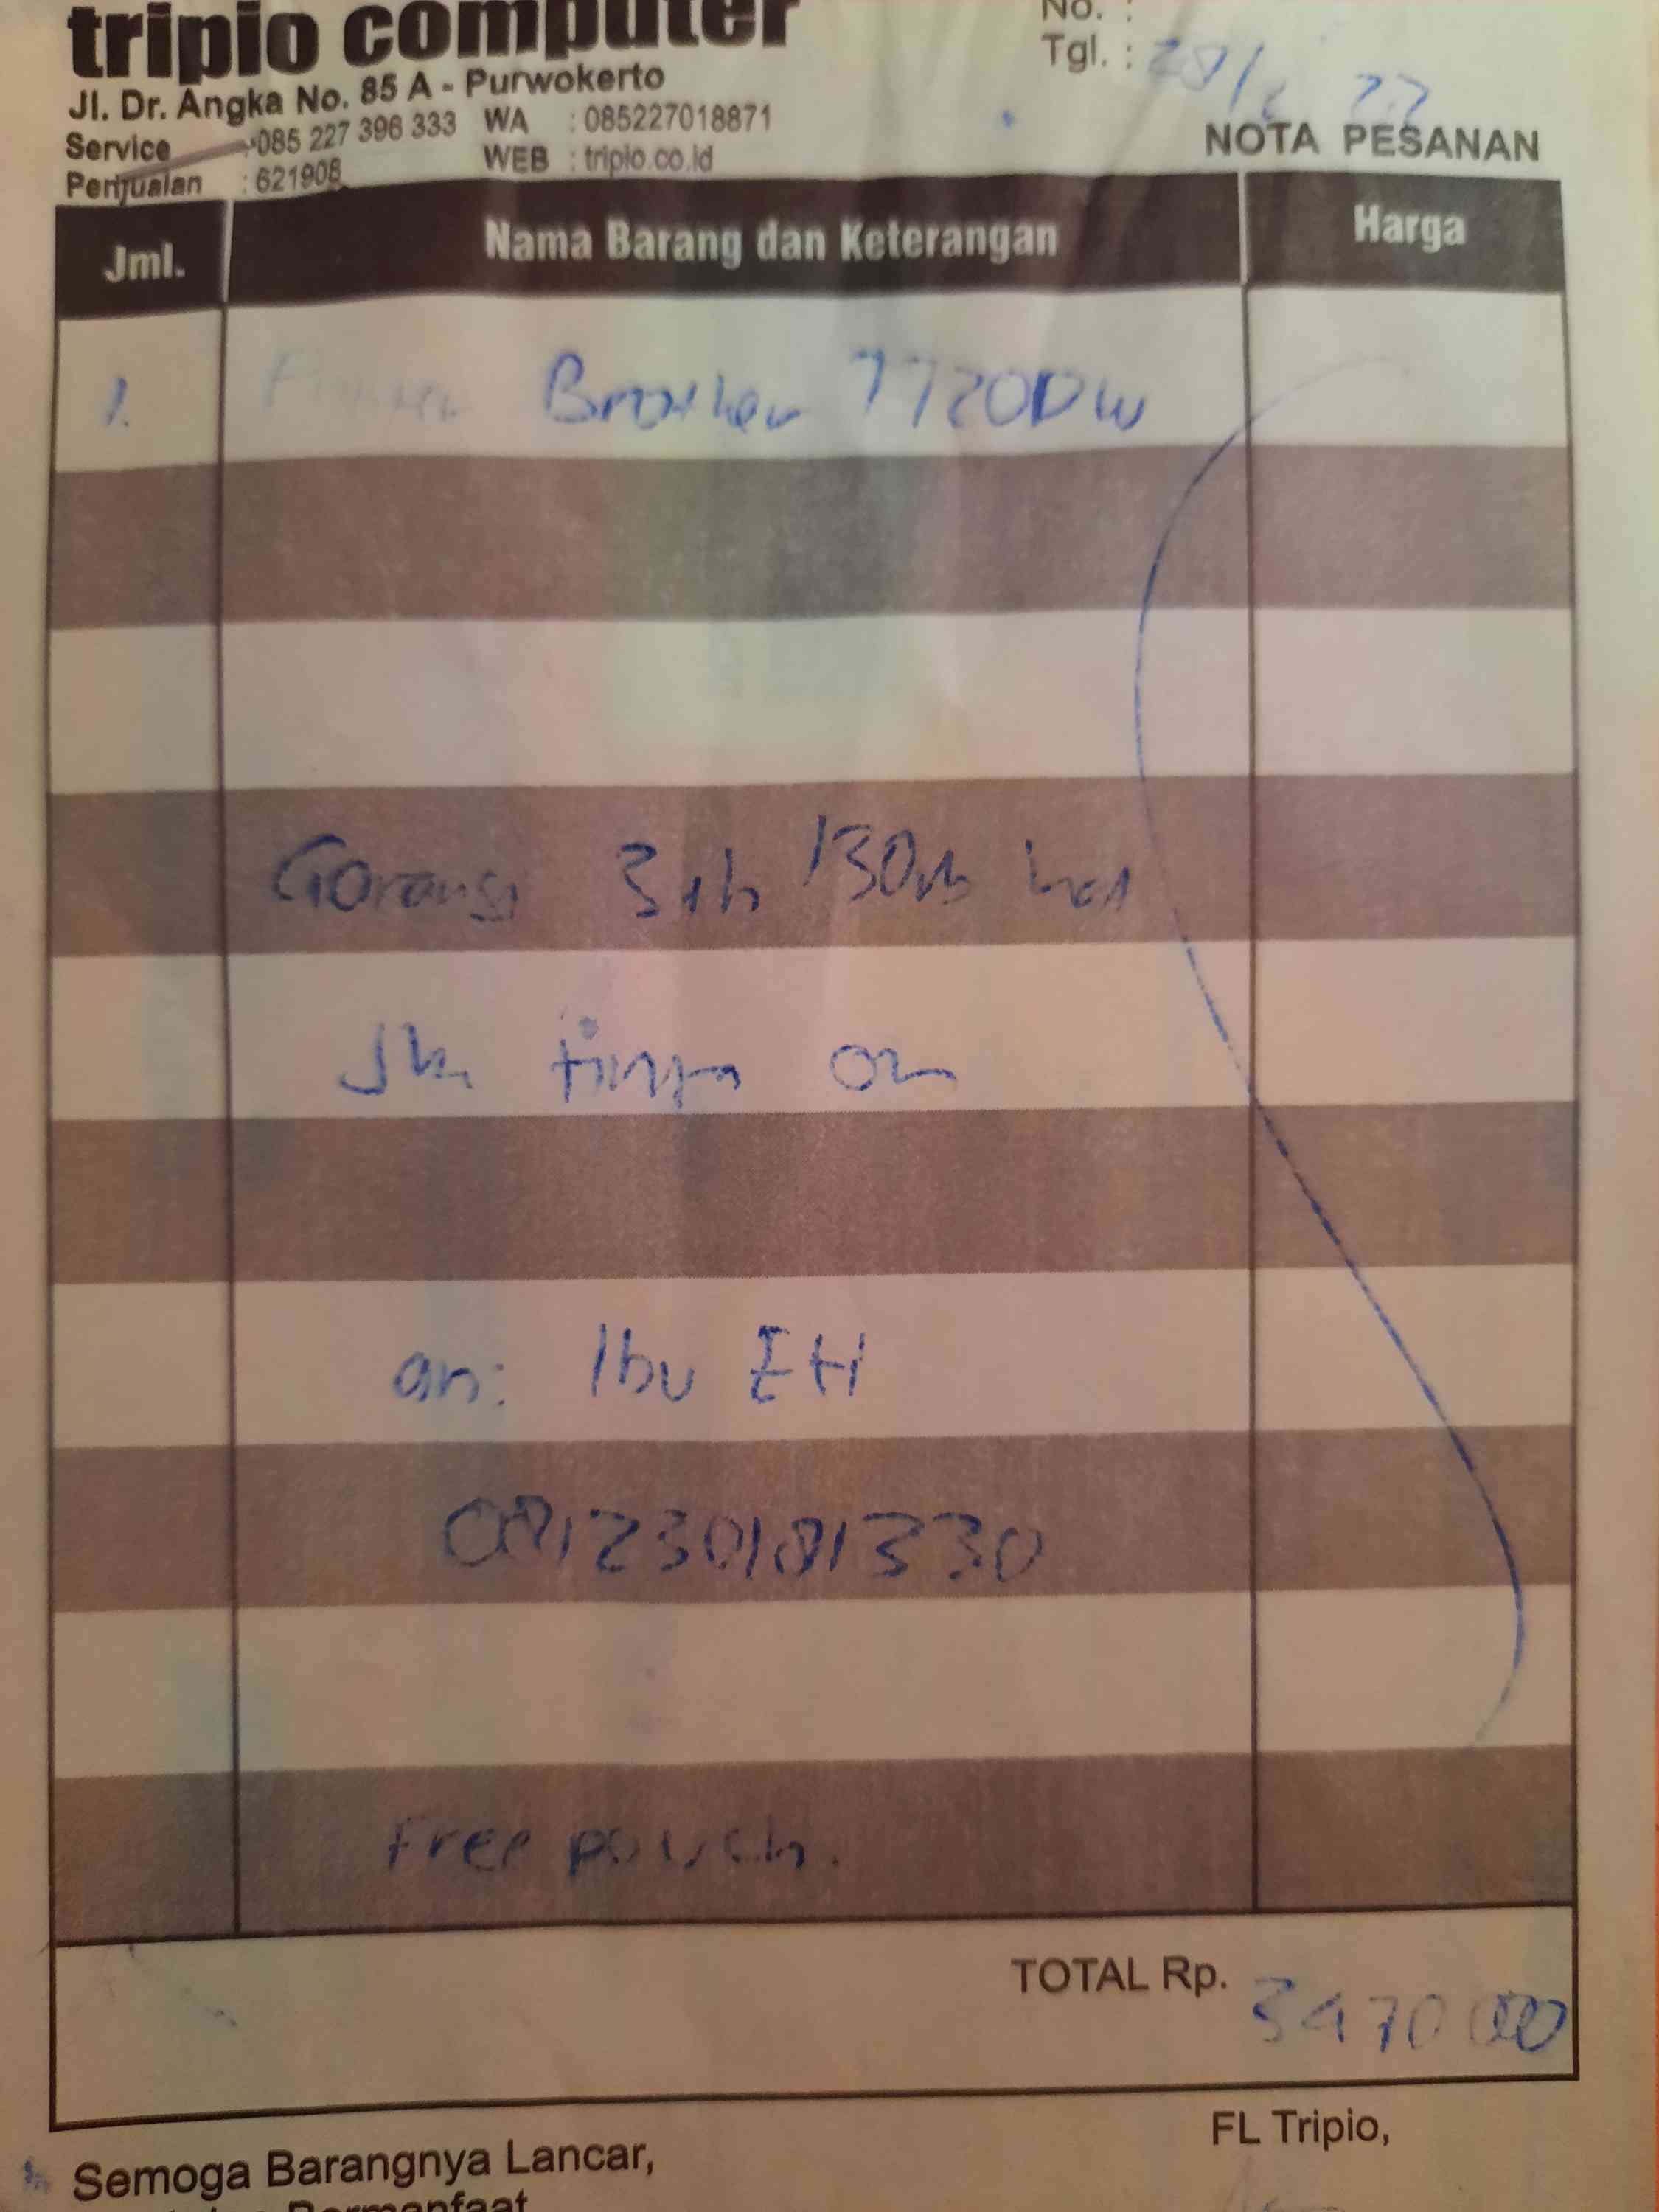 tripio computer
Jl. Dr. Angka No. 85 A - Purwokerto
Service : 085 227 396 333 WA : 085227018871
Penjualan : 621908 WEB : tripio.co.id
No. :
Tgl. : 22
NOTA PESANAN
Jml. Nama Barang dan Keterangan Harga
1. Printer Brother 7720DW
Garansi 3th
an: Ibu Eti
081230181330
Free pouch.
TOTAL Rp. 3470000
FL Tripio,
Semoga Barangnya Lancar,
Bermanfaat